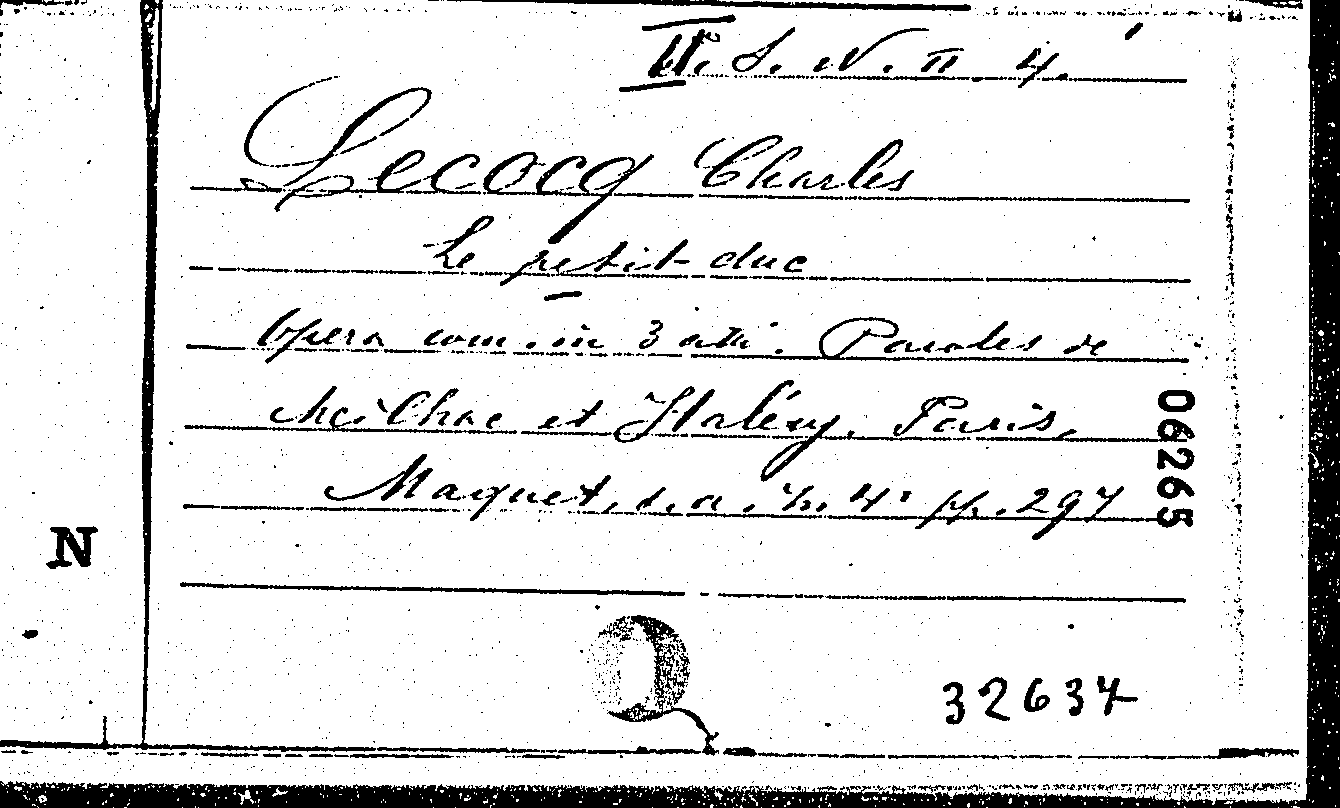 II. S. N. II. 4.
Lecocq Charles
Le petit duc
Opera com. in 3 atti. Paroles de
Meilhac et Halévy. Paris,
Maquet, s. a. in 4° pp. 297
06265
N
32637